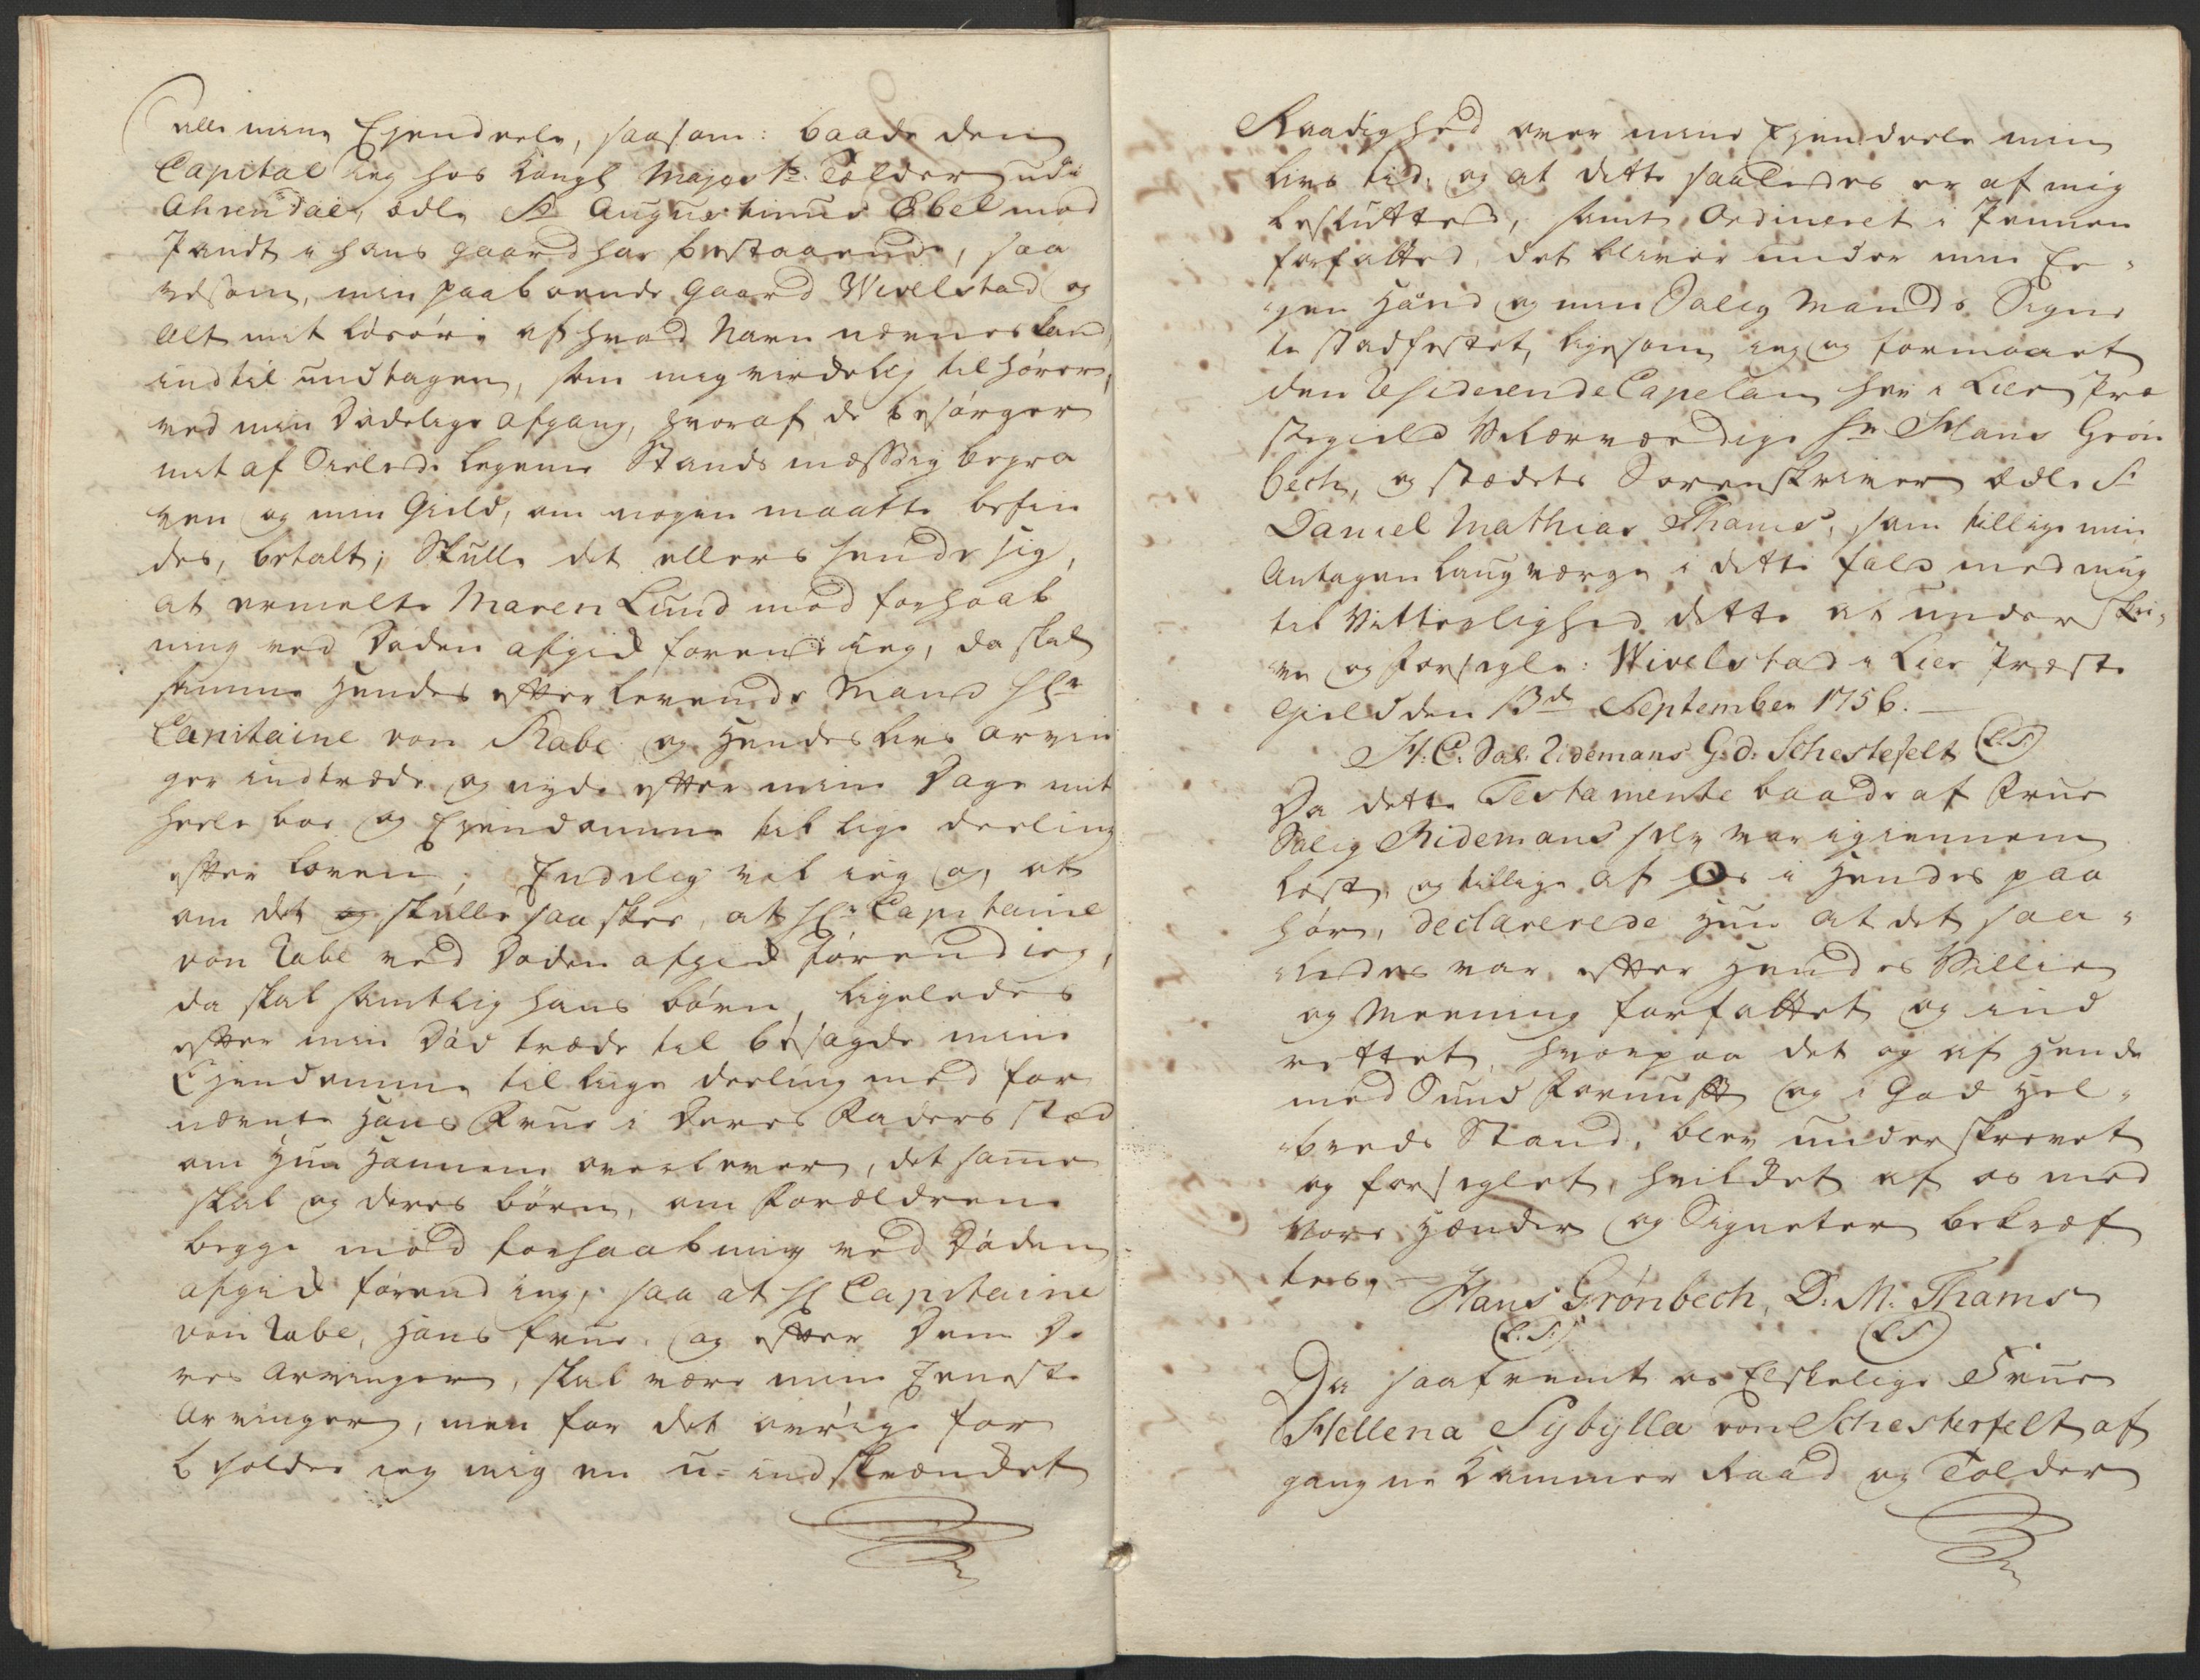 alle mine Ejendeele, saasom: baade den
Capital ieg hos Kongl Mayst:s Tolder udi
Ahrendal, ædle Sr Augustinus Ebel mod
Pandt i hans gaard har bestaaende, saa
velsom, min paaboende Gaard Wivelstad og
Alt mit løsøre af hvad Navn nævnes kand,
indtil undtagen, som mig virdelig tilhører,
ved min Dødelige afgang, hvoraf de besørger
mit af Sielede legeme Stands mæssig begra
ven og min Gield, om nogen maatte befin
des, betalt; Skulle det ellers hende sig,
at ermelte Maren Lund mod forhaab
ning ved Døden afgik forend ieg, da skal
samme hendes efterlevende Mand Hr
Capitaine von Rabe og hendes livs arvin
ger indtræde og nyde efter mine Dage mit
heele boe og Ejendomme til lige deeling
efter loven; Endelig vil ieg og, at
om det og skulle saa skee, at Hr Capitaine
von Rabe ved Døden afgik førend ieg,
da skal samtlig hans børn, ligeledes
efter min Død træde til besagde mine
Ejendomme til liige deeling med for
nevnte hans Frue i deres Faders stæd
om hun hannem overlever, det samme
skal og deres børn, om Forældrene
begge mod forhaabning ved Døden
afgik førend ieg, saa at Hr Capitaine
von Rabe, hans frue, og efter Dem De
res Arvinger, skal være mine Eeneste
Arvinger, men for det øvrige for
beholder ieg mig en u-indskrænket
Raadighed over mine Ejendeele min
livs tid, og at dette saaledes er af mig
besluttet, samt Ordineret i Pennen
forfattet, det bliver under min Ee-
gen Haand og min Salig Mands Signe
te stadfestet, ligesom ieg og formaaet
den Residerende Capelan her i Lier Præ
stegield Velærværdige Hr Hans Grøn
bech, og stædets Sorenskriver ædle Sr
Daniel Mathias Thams, som tillige min
Antagen laugværge i dette fald med mig
til Vitterlighed dette at underskri-
ve og forsegle: Wivelstad i Lier Præste
Gield den 13de September 1756.
H: C: Sal: Ridemans G: d: Schestefelt (L.S.)
Da dette Testamente baade af Frue
Salig Ridemans selv var igiennem
læst, og tillige af Os i Hendes paa
hør, declarerede hun at det saa-
ledes var efter Hendes Villie
og Meening forfattet og ind
rettet, hvorpaa det og af Hende
med Sund Fornuft og i God Hel-
breds Stand, blev underskrevet
og forseglet, hvilket af os med
Vore Hænder og Signeter bekræf
tes,
Hans Grønbech, D: M: Thams
(L.S.) (L.S.)
Da saafremt os Elskelige Frue
Hellena Sybylla von Schesterfelt af
gangne Kammer Raad og Tolder